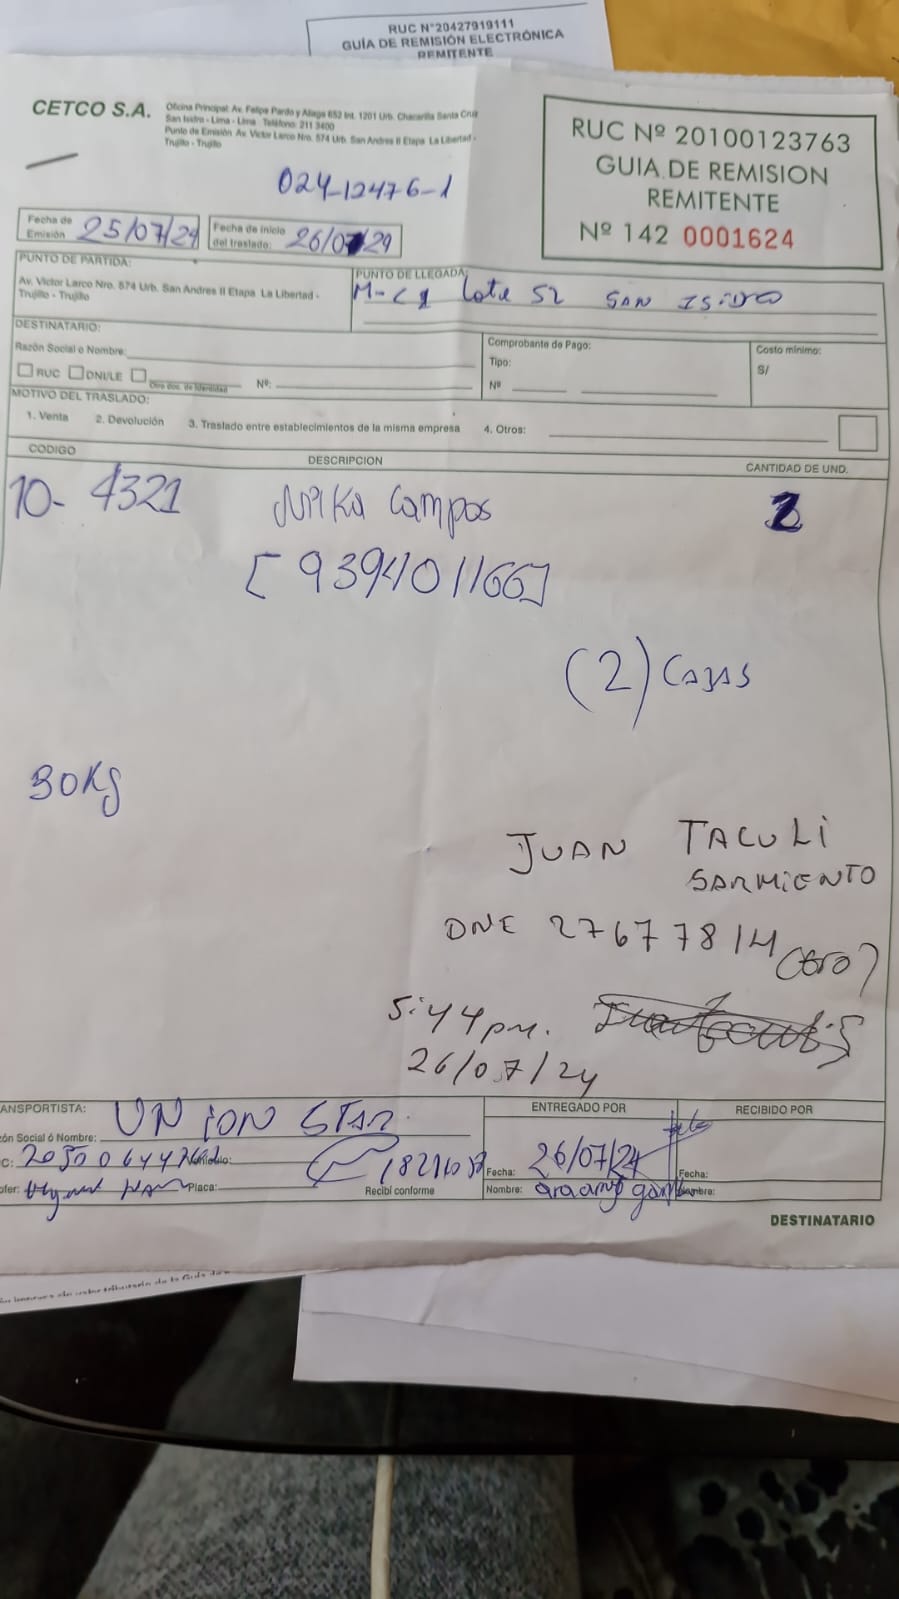 RUC N°20427919111
GUÍA DE REMISIÓN ELECTRÓNICA
REMITENTE
CETCO S.A.
Oficina Principal: Av. Felipe Pardo y Aliaga 652 Int. 1201 Urb. Chacarilla Santa Cruz
San Isidro - Lima - Lima Teléfono: 211 3400
Punto de Emisión: Av. Victor Larco Nro. 574 Urb. San Andres II Etapa La Libertad -
Trujillo - Trujillo
RUC Nº 20100123763
GUIA DE REMISION
REMITENTE
Nº 142 0001624
024-12476-1
Fecha de Emisión 25/07/24
Fecha de inicio del traslado: 26/07/24
PUNTO DE PARTIDA:
Av. Victor Larco Nro. 574 Urb. San Andres II Etapa La Libertad -
Trujillo - Trujillo
PUNTO DE LLEGADA:
Lote 52 SAN ISIDRO
DESTINATARIO:
Razón Social o Nombre:
RUC DNI/LE Otro doc. de identidad Nº:
Comprobante de Pago:
Tipo:
Nº
Costo mínimo:
S/
MOTIVO DEL TRASLADO:
1. Venta 2. Devolución 3. Traslado entre establecimientos de la misma empresa 4. Otros:
CODIGO DESCRIPCION CANTIDAD DE UND.
10- 4321 Campos 2
[939401166]
(2) CAJAS
30Kg
JUAN TACULI
SARMIENTO
DNE 27677814
5:44 pm.
26/07/24
ANSPORTISTA: UNION STAR
ón Social ó Nombre:
C:
ofer:
Placa:
Recibí conforme
ENTREGADO POR
Fecha: 26/07/24
Nombre:
RECIBIDO POR
Fecha:
DESTINATARIO